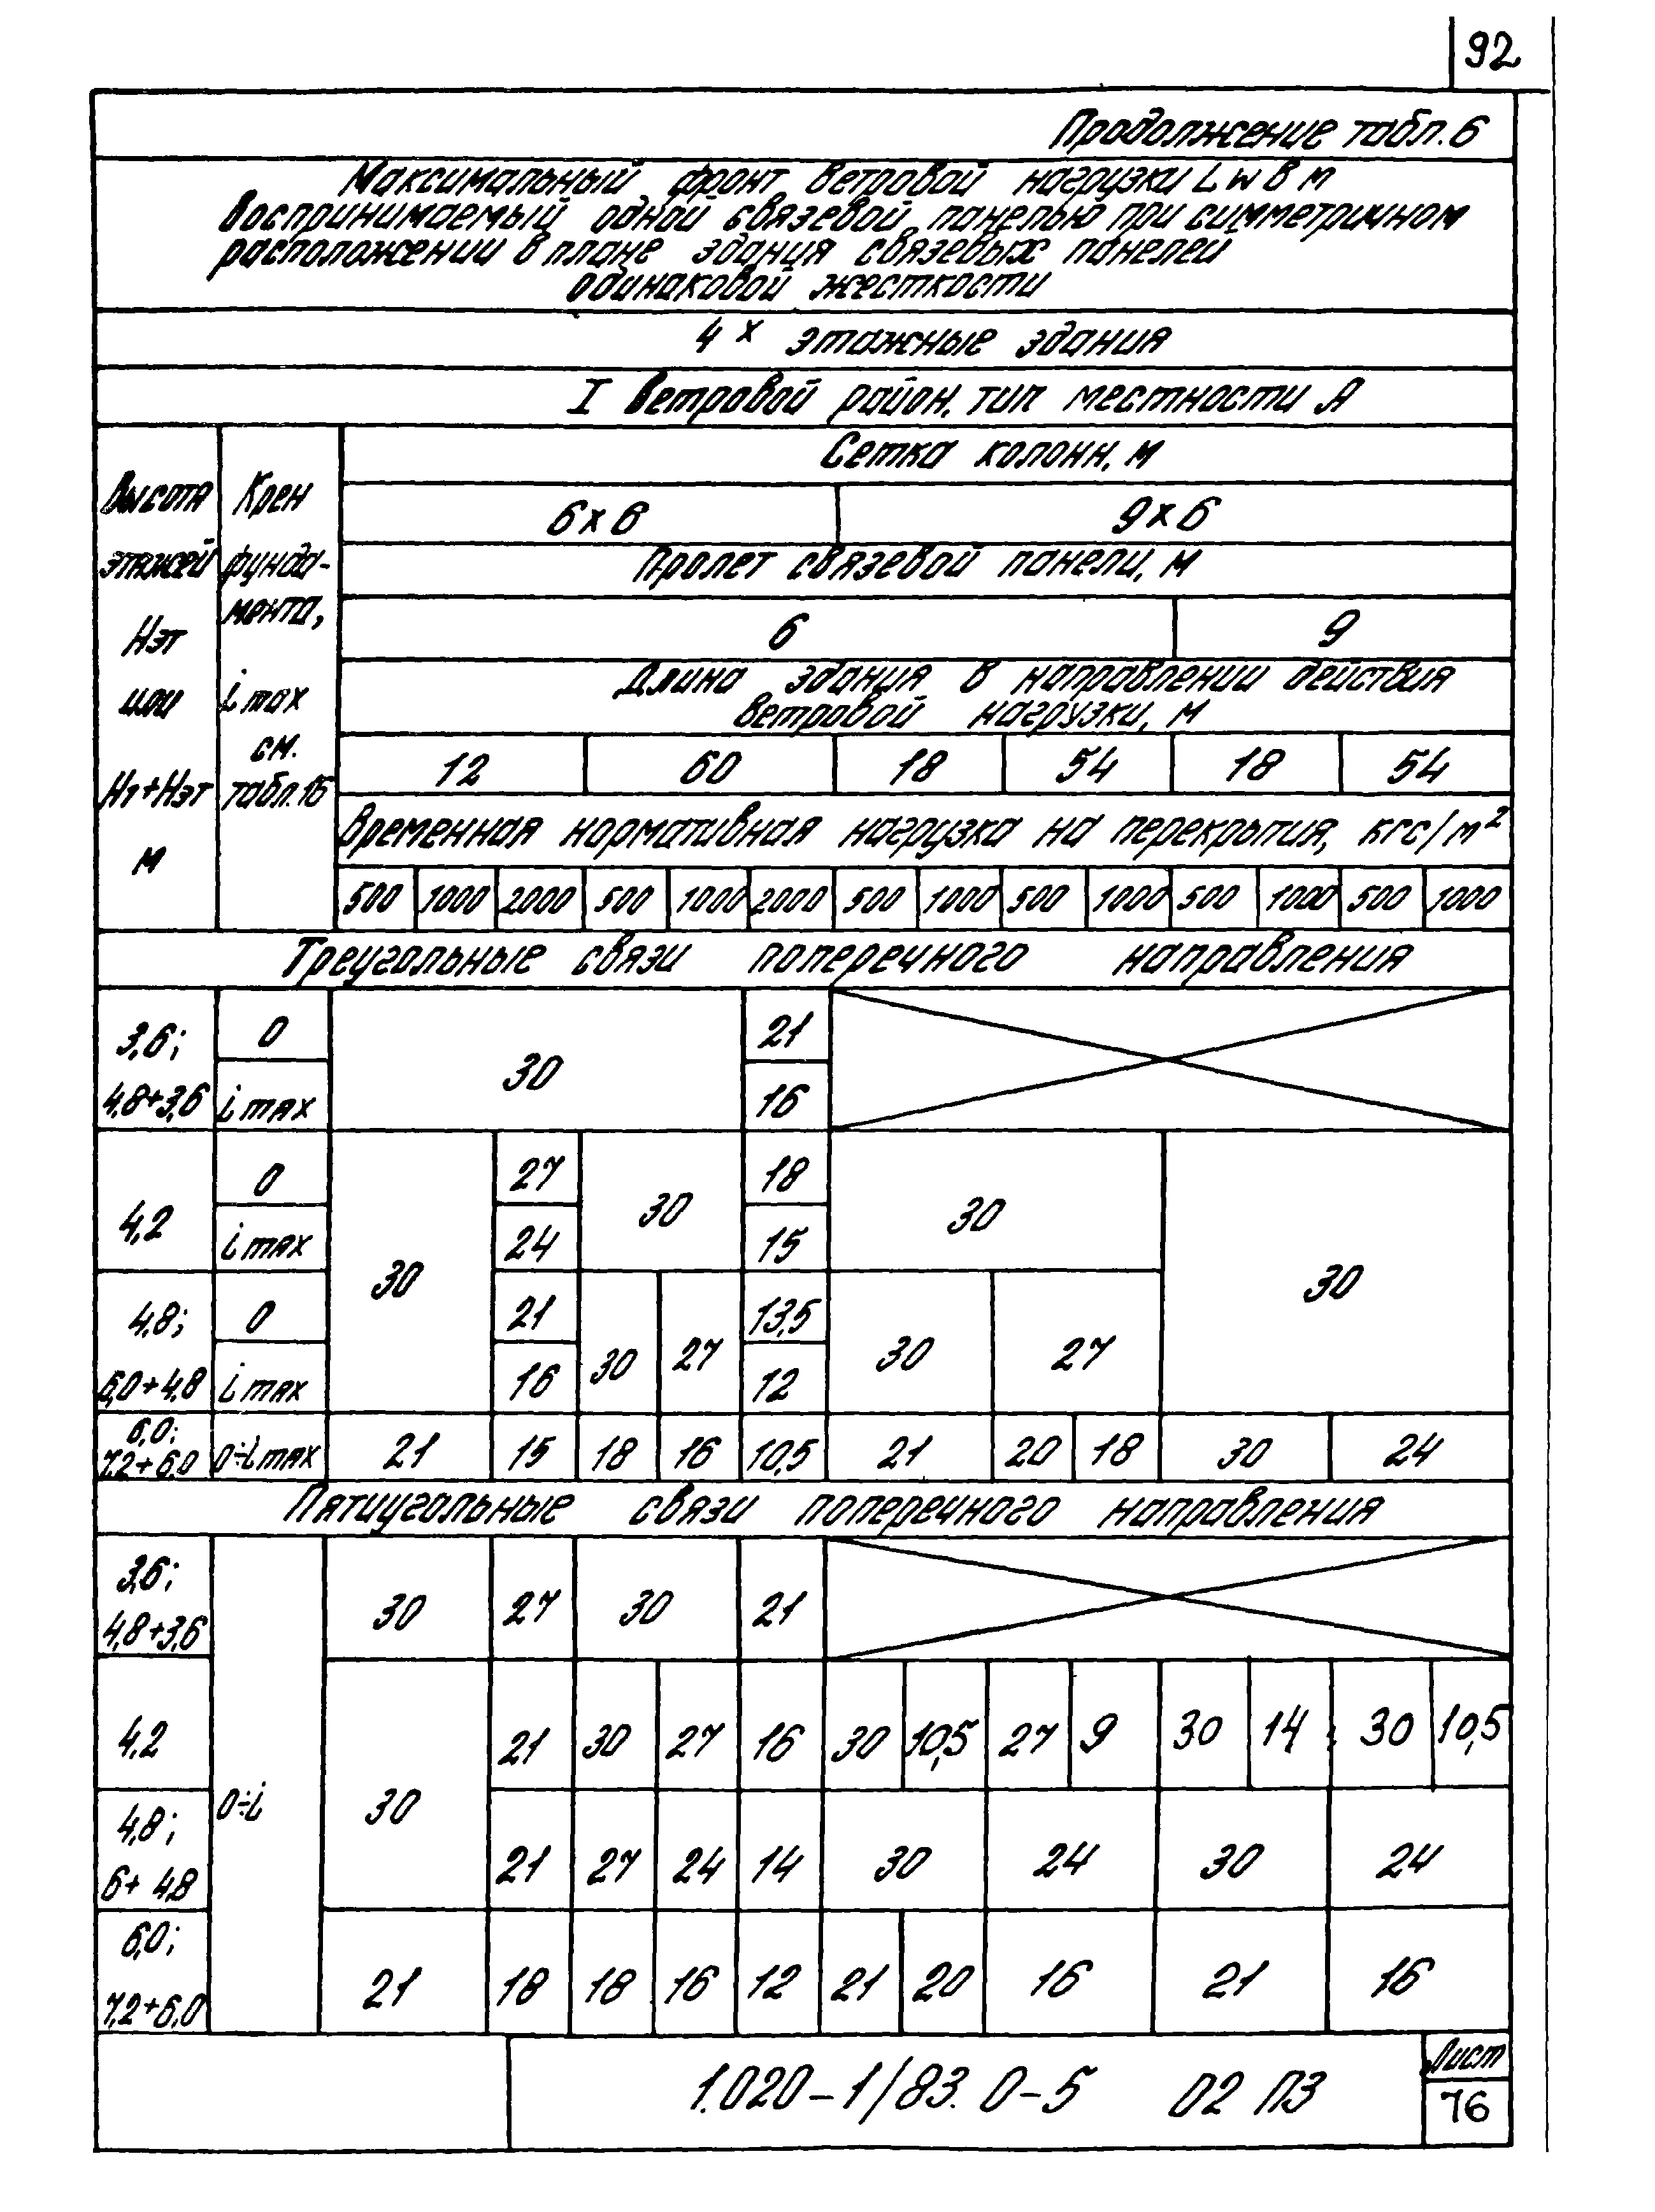 92
Продолжение табл.6
Максимальный фронт ветровой нагрузки Lw в м
воспринимаемый одной связевой панелью при симметричном
расположении в плане здания связевых панелей
одинаковой жесткости
4х этажные здания
I Ветровой район, тип местности А
Высота этажей Нэт или Н1+Нэт м
Крен фунда-мента, i max см. табл.16
Сетка колонн, м
6х6 9х6
Пролет связевой панели, м
6 9
Длина здания в направлении действия
ветровой нагрузки, м
12 60 18 54 18 54
Временная нормативная нагрузка на перекрытия, кгс/м²
500 1000 2000 500 1000 2000 500 1000 500 1000 500 1000 500 1000
Треугольные связи поперечного направления
3,6; 0 30 21
4,8+3,6 i max 16
4,2 0 30 27 30 18 30 30
i max 24 15
4,8; 0 21 30 27 13,5 30 27
6,0+4,8 i max 16 12
6,0;
7,2+6,0 0÷i max 21 15 18 16 10,5 21 20 18 30 24
Пятиугольные связи поперечного направления
3,6;
4,8+3,6 0÷i 30 27 30 21
4,2 30 21 30 27 16 30 10,5 27 9 30 14 30 10,5
4,8;
6+4,8 21 27 24 14 30 24 30 24
6,0;
7,2+6,0 21 18 18 16 12 21 20 16 21 16
1.020-1/83. 0-5 02 ПЗ
Лист
76